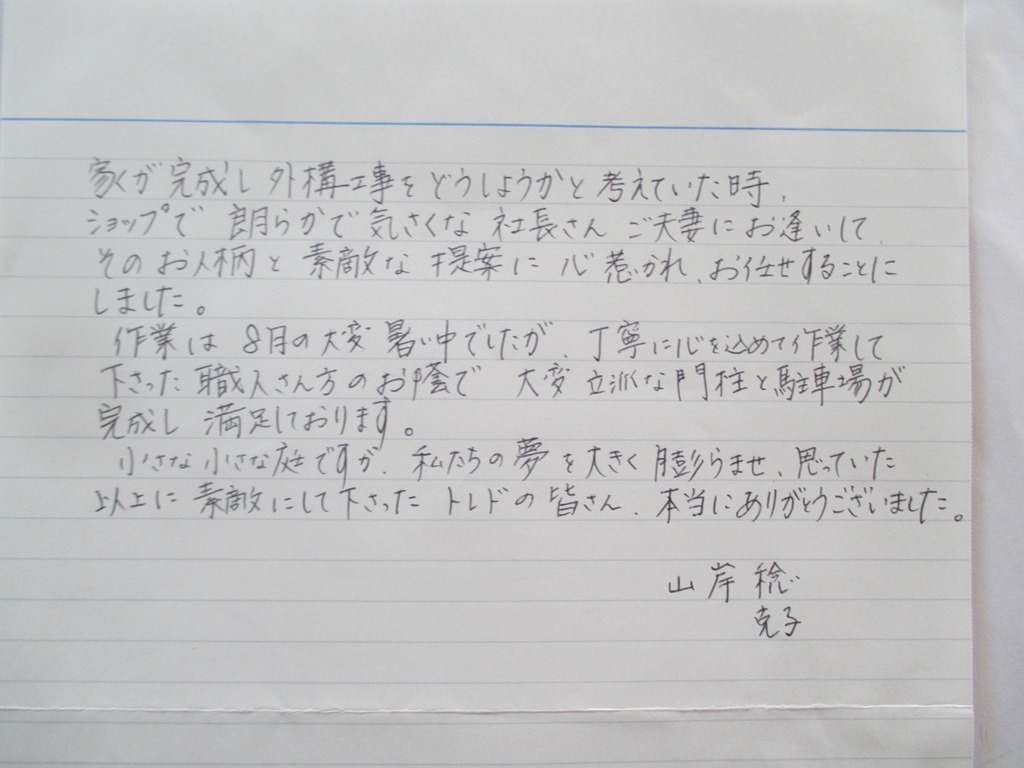 家が完成し外構工事をどうしようかと考えていた時、
ショップで朗らかで気さくな社長さんご夫妻にお逢いして
そのお人柄と素敵な提案に心惹かれ、お任せすることに
しました。
作業は8月の大変暑い中でしたが、丁寧に心を込めて作業して
下さった職人さん方のお陰で大変立派な門柱と駐車場が
完成し満足しております。
小さな小さな庭ですが、私たちの夢を大きく膨らませ、思っていた
以上に素敵にして下さったトレドの皆さん、本当にありがとうございました。
山岸稔
克子